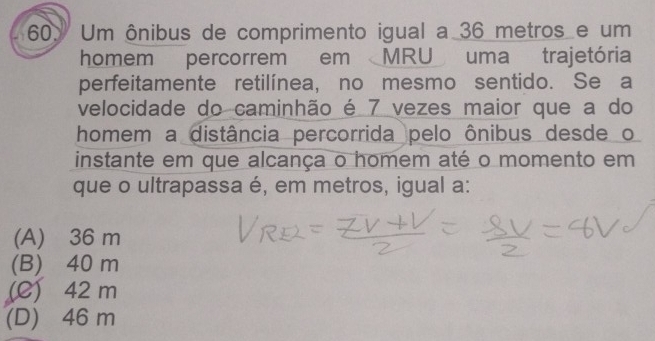 60. Um ônibus de comprimento igual a 36 metros e um
homem percorrem em MRU uma trajetória
perfeitamente retilínea, no mesmo sentido. Se a
velocidade do caminhão é 7 vezes maior que a do
homem a distância percorrida pelo ônibus desde o
instante em que alcança o homem até o momento em
que o ultrapassa é, em metros, igual a:
VREL = 7V+V/2 = 8V/2 = 4V
(A) 36 m
(B) 40 m
(C) 42 m
(D) 46 m